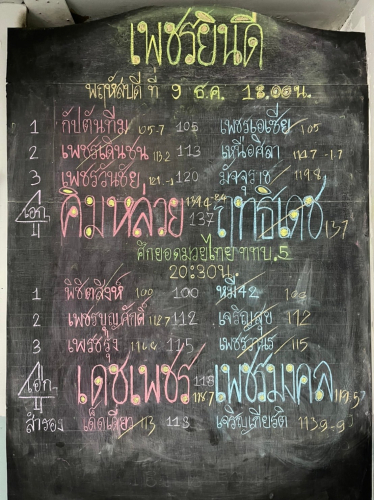 เพชรยินดี
พฤหัสบดี ที่ 9 ธ.ค. 18.00น.
1 กัปตันทีม 105.7 105 เพชรเอเซีย 105
2 เพชรเด่นชน 113.2 113 เหนือศิลา 114.7 -1.7
3 เพชรวันชัย 121 -1 120 มัจจุราช 119.8
เอก 4 คิมหลวย 137 ฤทธิเดช 137
ศึกยอดมวยไทย ททบ.5
20:30น.
1 พิชิตสิงห์ 100 100 หมี42
2 เพชรบุญศักดิ์ 112.7 112 เจริญสุข 112
3 เพชรรุ่ง 115 115
เอก 4 เดชเพชร 118 118.7 เพชรมงคล
สำรอง เด็ดเดี่ยว 113 113 เจริญเกียรติ 113.9 -.9